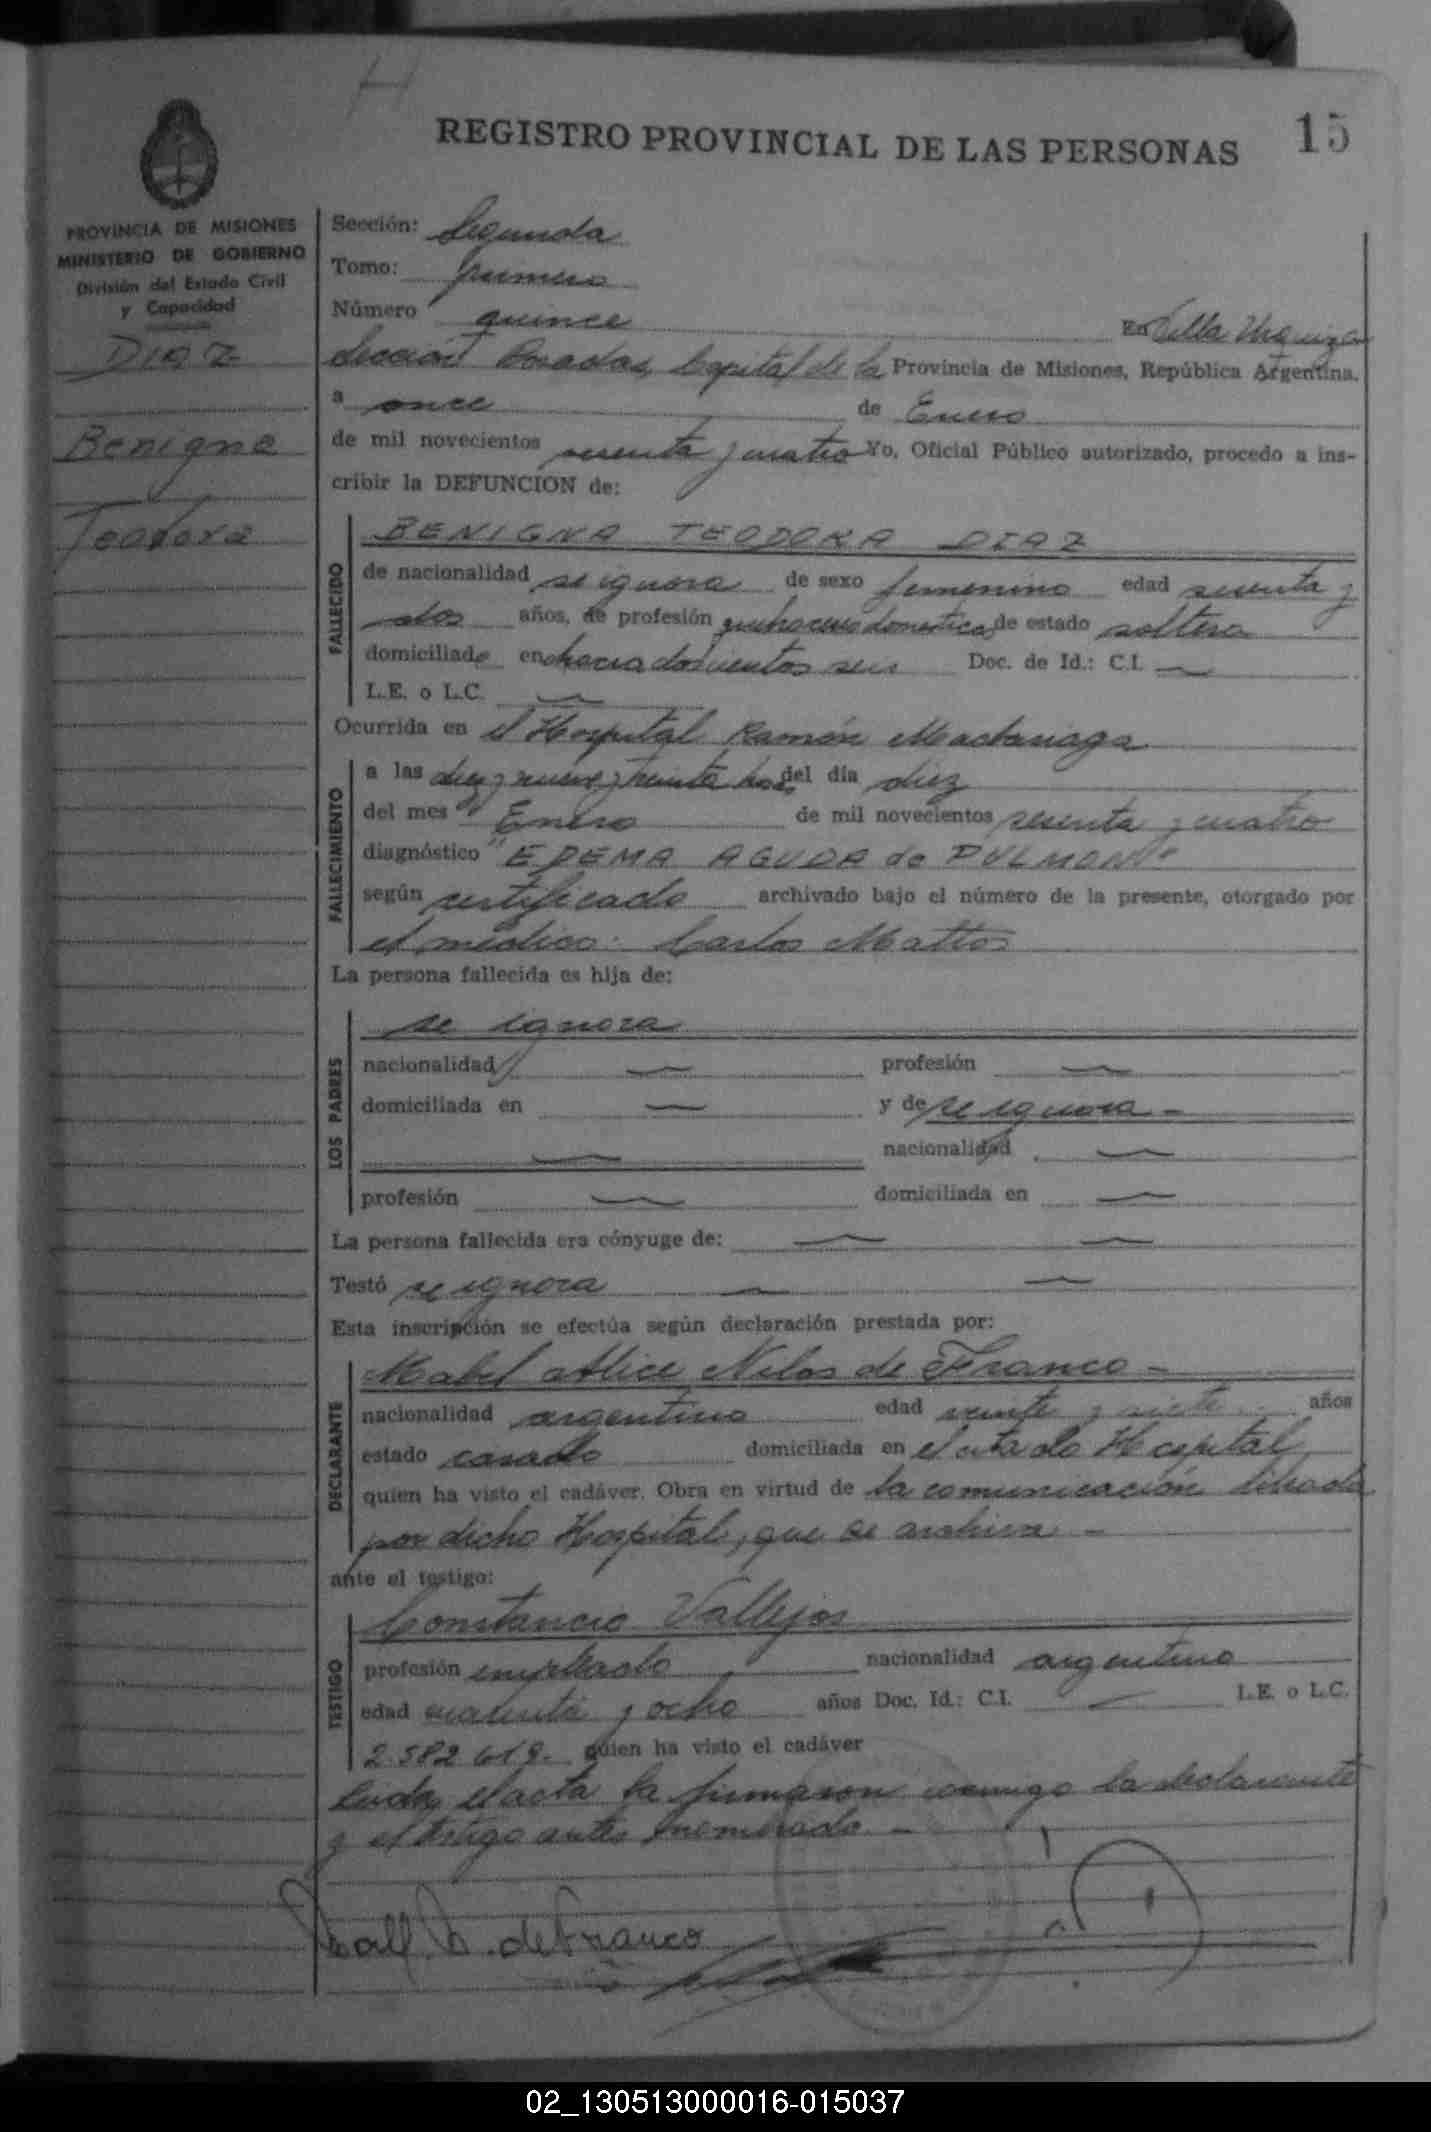 REGISTRO PROVINCIAL DE LAS PERSONAS
15
PROVINCIA DE MISIONES
MINISTERIO DE GOBIERNO
División del Estado Civil
y Capacidad
DIAZ
Benigna
Teodora
Sección: Segunda
Tomo: primero
Número quince
En Villa Urquiza
Sección Posadas, Capital de la Provincia de Misiones, República Argentina,
a once de Enero
de mil novecientos sesenta y cuatro Yo, Oficial Público autorizado, procedo a ins-
cribir la DEFUNCION de:
FALLECIDO
BENIGNA TEODORA DIAZ
de nacionalidad se ignora de sexo femenino edad sesenta y
dos años, de profesión quehaceres domesticos de estado soltera
domiciliada en chacra doscientos seis Doc. de Id.: C.I.
L.E. o L.C.
Ocurrida en el Hospital Ramón Madariaga
FALLECIMIENTO
a las diez y nueve y treinta hs. del día diez
del mes Enero de mil novecientos sesenta y cuatro
diagnóstico "EDEMA AGUDA de PULMON"
según certificado archivado bajo el número de la presente, otorgado por
el médico: Carlos Mattos
La persona fallecida es hija de:
LOS PADRES
se ignora
nacionalidad profesión
domiciliada en y de se ignora -
nacionalidad
profesión domiciliada en
La persona fallecida era cónyuge de:
Testó se ignora
Esta inscripción se efectúa según declaración prestada por:
DECLARANTE
Mabel Alice Nilos de Franco -
nacionalidad argentina edad veinte y siete años
estado casada domiciliada en el citado Hospital
quien ha visto el cadáver. Obra en virtud de la comunicación librada
por dicho Hospital, que se archiva -
ante el testigo:
TESTIGO
Constancio Vallejos
profesión empleado nacionalidad argentino
edad cuarenta y ocho años Doc. Id.: C.I. L.E. o L.C.
2.582.619.- quien ha visto el cadáver
Leida el acta la firmaron conmigo la declarante
y el testigo antes nomenado. -
de Franco
02_130513000016-015037